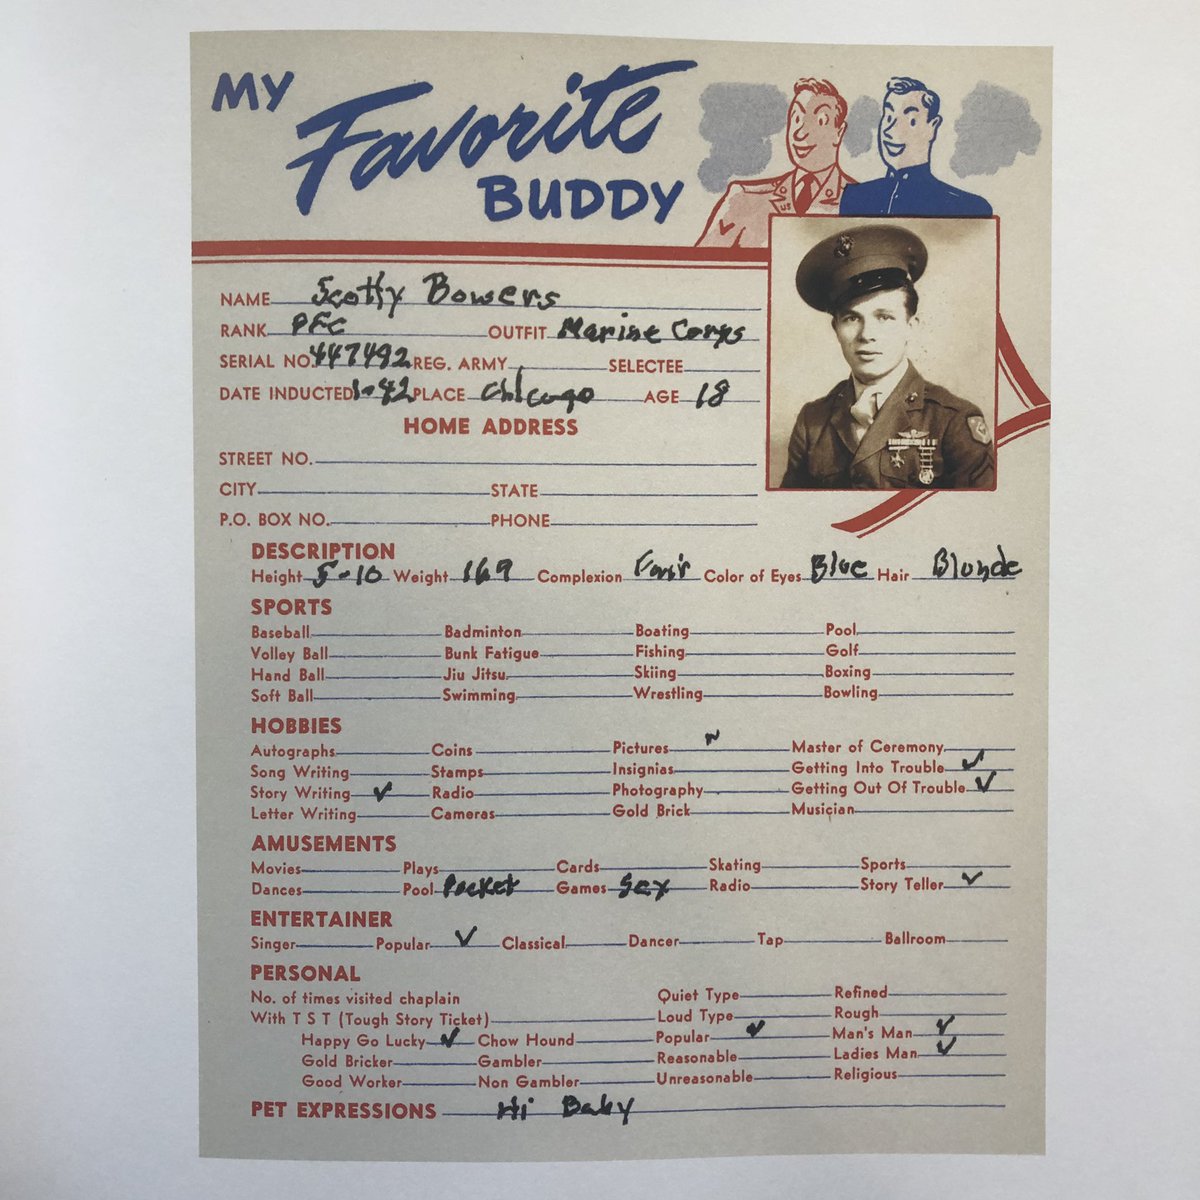 MY Favorite BUDDY
US
NAME Scotty Bowers
RANK PFC OUTFIT Marine Corps
SERIAL NO. 447492 REG. ARMY SELECTEE
DATE INDUCTED 1-42 PLACE Chicago AGE 18
HOME ADDRESS
STREET NO.
CITY STATE
P.O. BOX NO. PHONE
DESCRIPTION
Height 5-10 Weight 169 Complexion Fair Color of Eyes Blue Hair Blonde
SPORTS
Baseball Badminton Boating Pool
Volley Ball Bunk Fatigue Fishing Golf
Hand Ball Jiu Jitsu Skiing Boxing
Soft Ball Swimming Wrestling Bowling
HOBBIES
Autographs Coins Pictures Master of Ceremony
Song Writing Stamps Insignias Getting Into Trouble ✓
Story Writing ✓ Radio Photography Getting Out Of Trouble ✓
Letter Writing Cameras Gold Brick Musician
AMUSEMENTS
Movies Plays Cards Skating Sports
Dances Pool Pocket Games Sex Radio Story Teller ✓
ENTERTAINER
Singer Popular ✓ Classical Dancer Tap Ballroom
PERSONAL
No. of times visited chaplain Quiet Type Refined
With T S T (Tough Story Ticket) Loud Type Rough
Happy Go Lucky ✓ Chow Hound Popular ✓ Man's Man ✓
Gold Bricker Gambler Reasonable Ladies Man ✓
Good Worker Non Gambler Unreasonable Religious
PET EXPRESSIONS Hi Baby